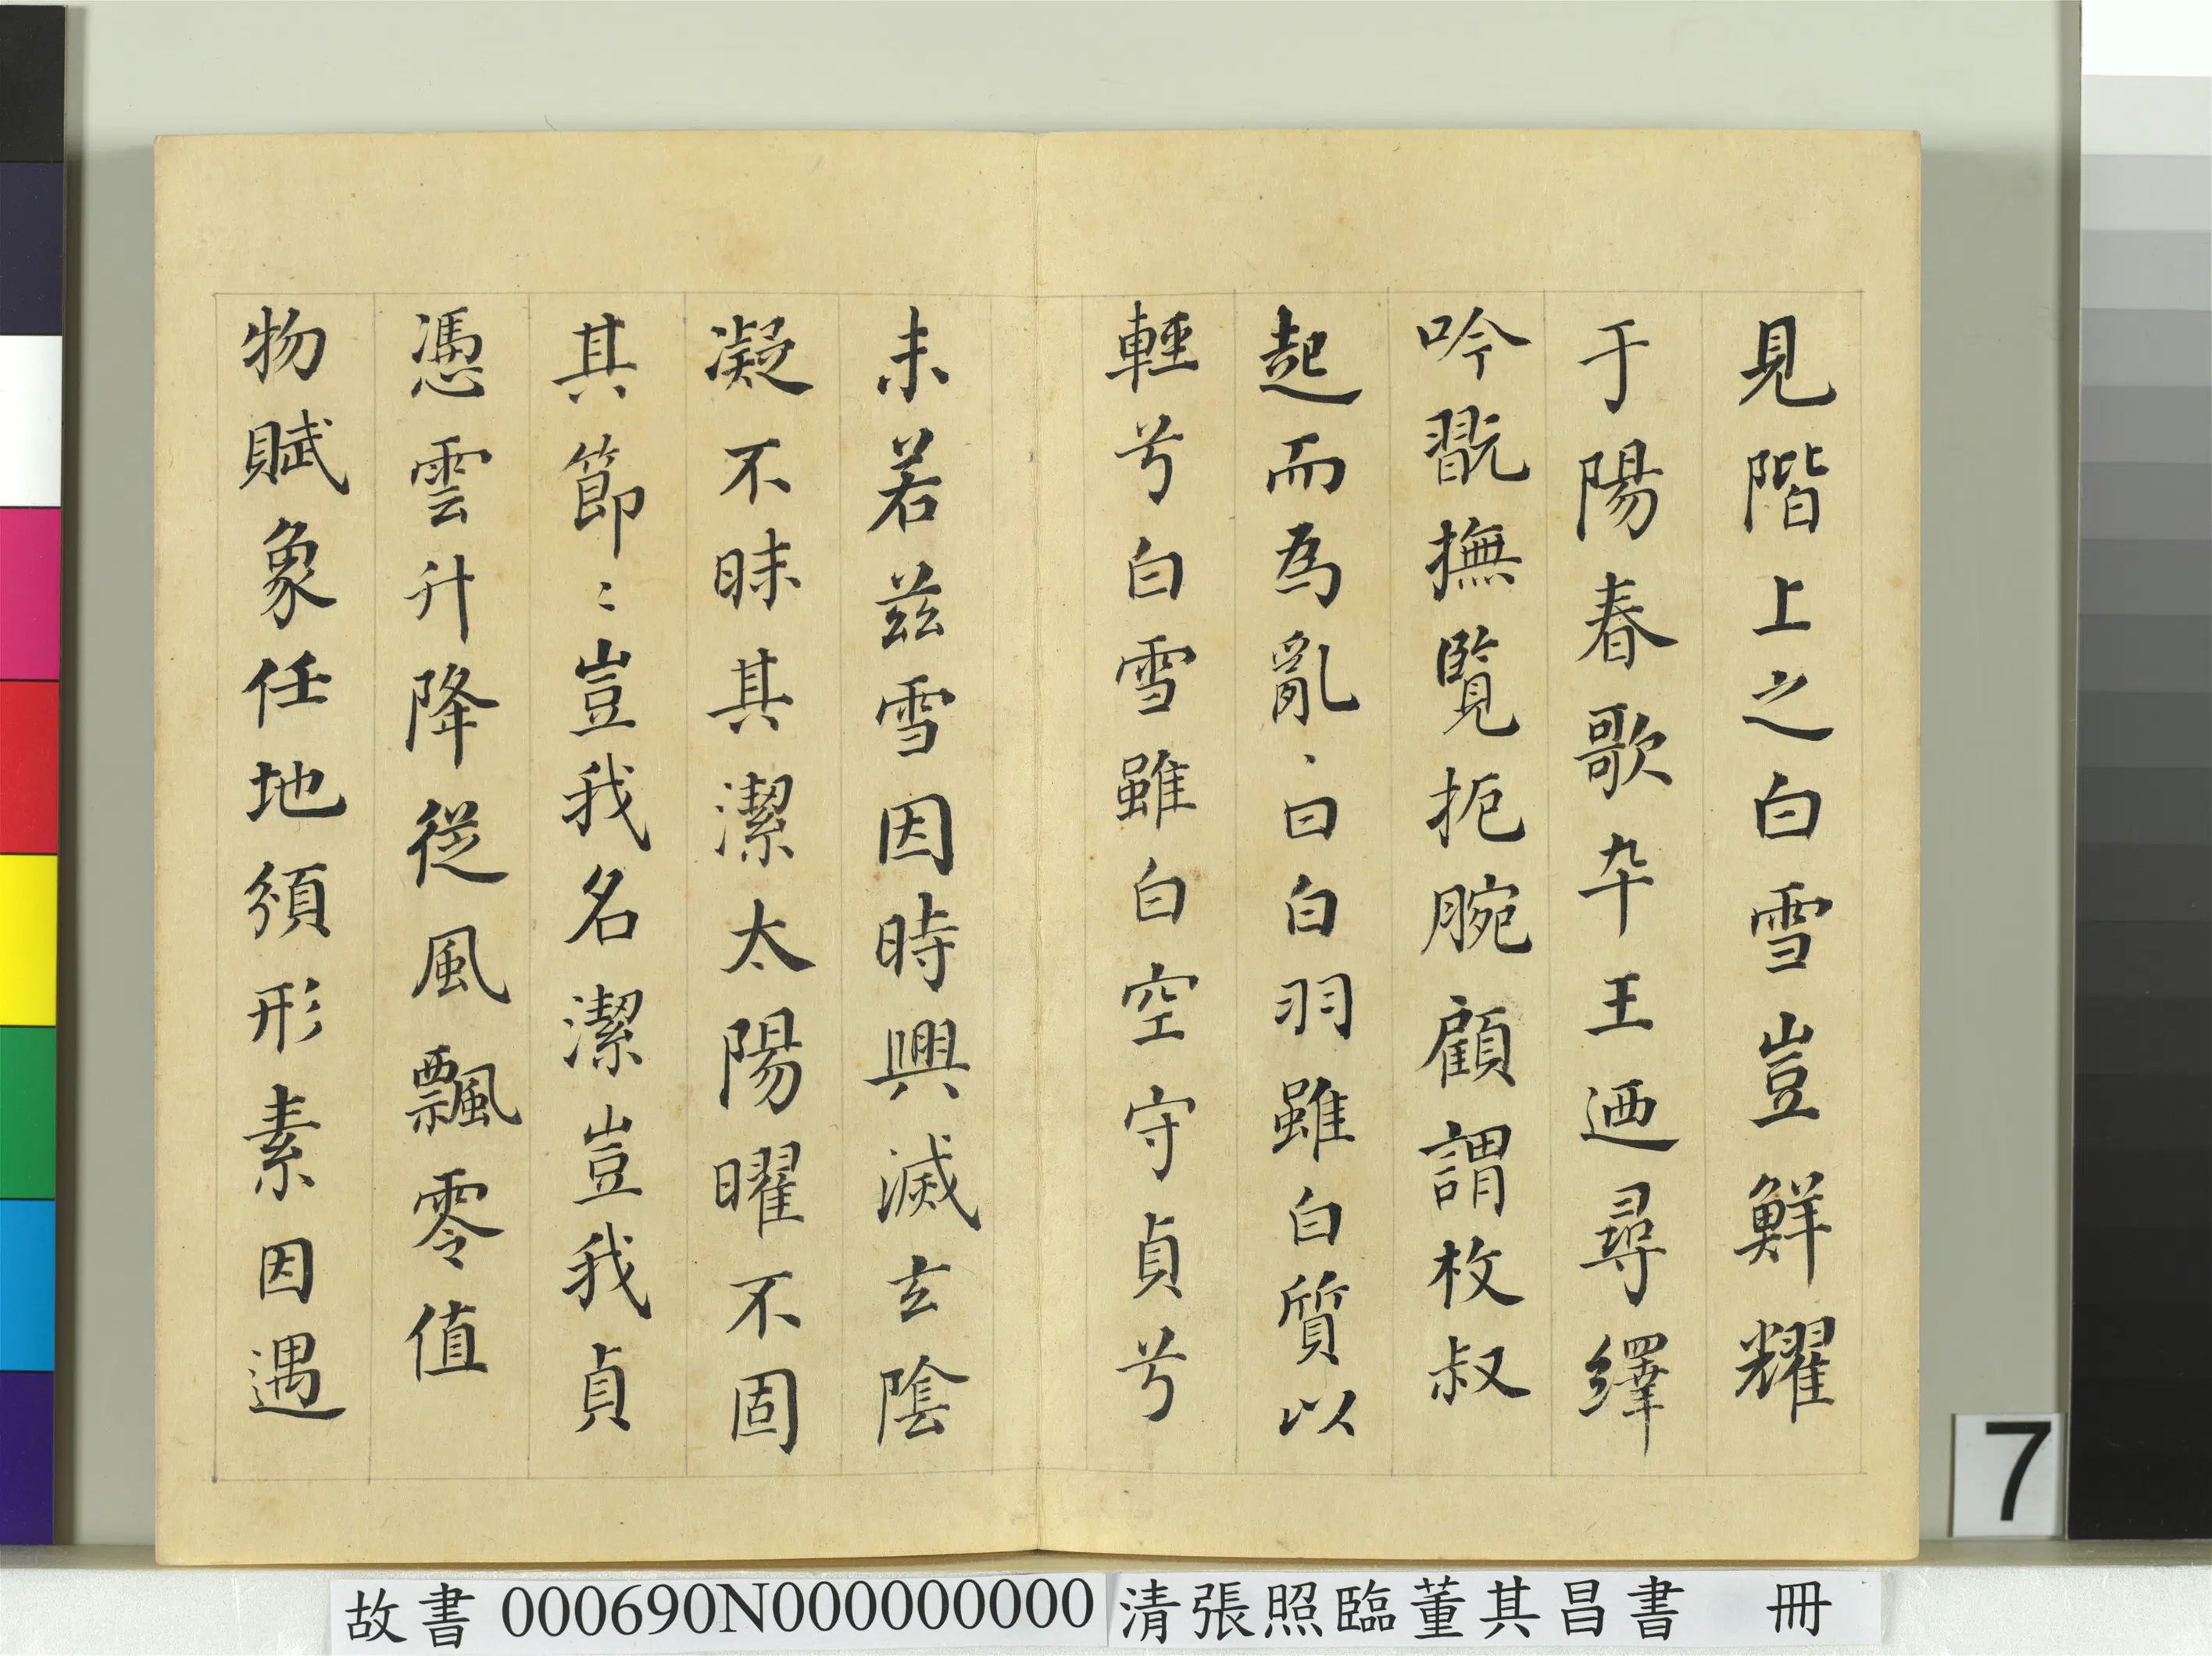 見階上之白雪豈鮮耀
于陽春歌卒王迺尋繹
吟翫撫覧扼腕顧謂枚叔
起而為亂、曰白羽雖白質以
輕兮白雪雖白空守貞兮
未若茲雪因時興滅玄陰
凝不昧其潔太陽曜不固
其節〻豈我名潔豈我貞
憑雲升降從風飄零值
物賦象任地須形素因遇
7
故書 000690N000000000
清張照臨董其昌書 冊